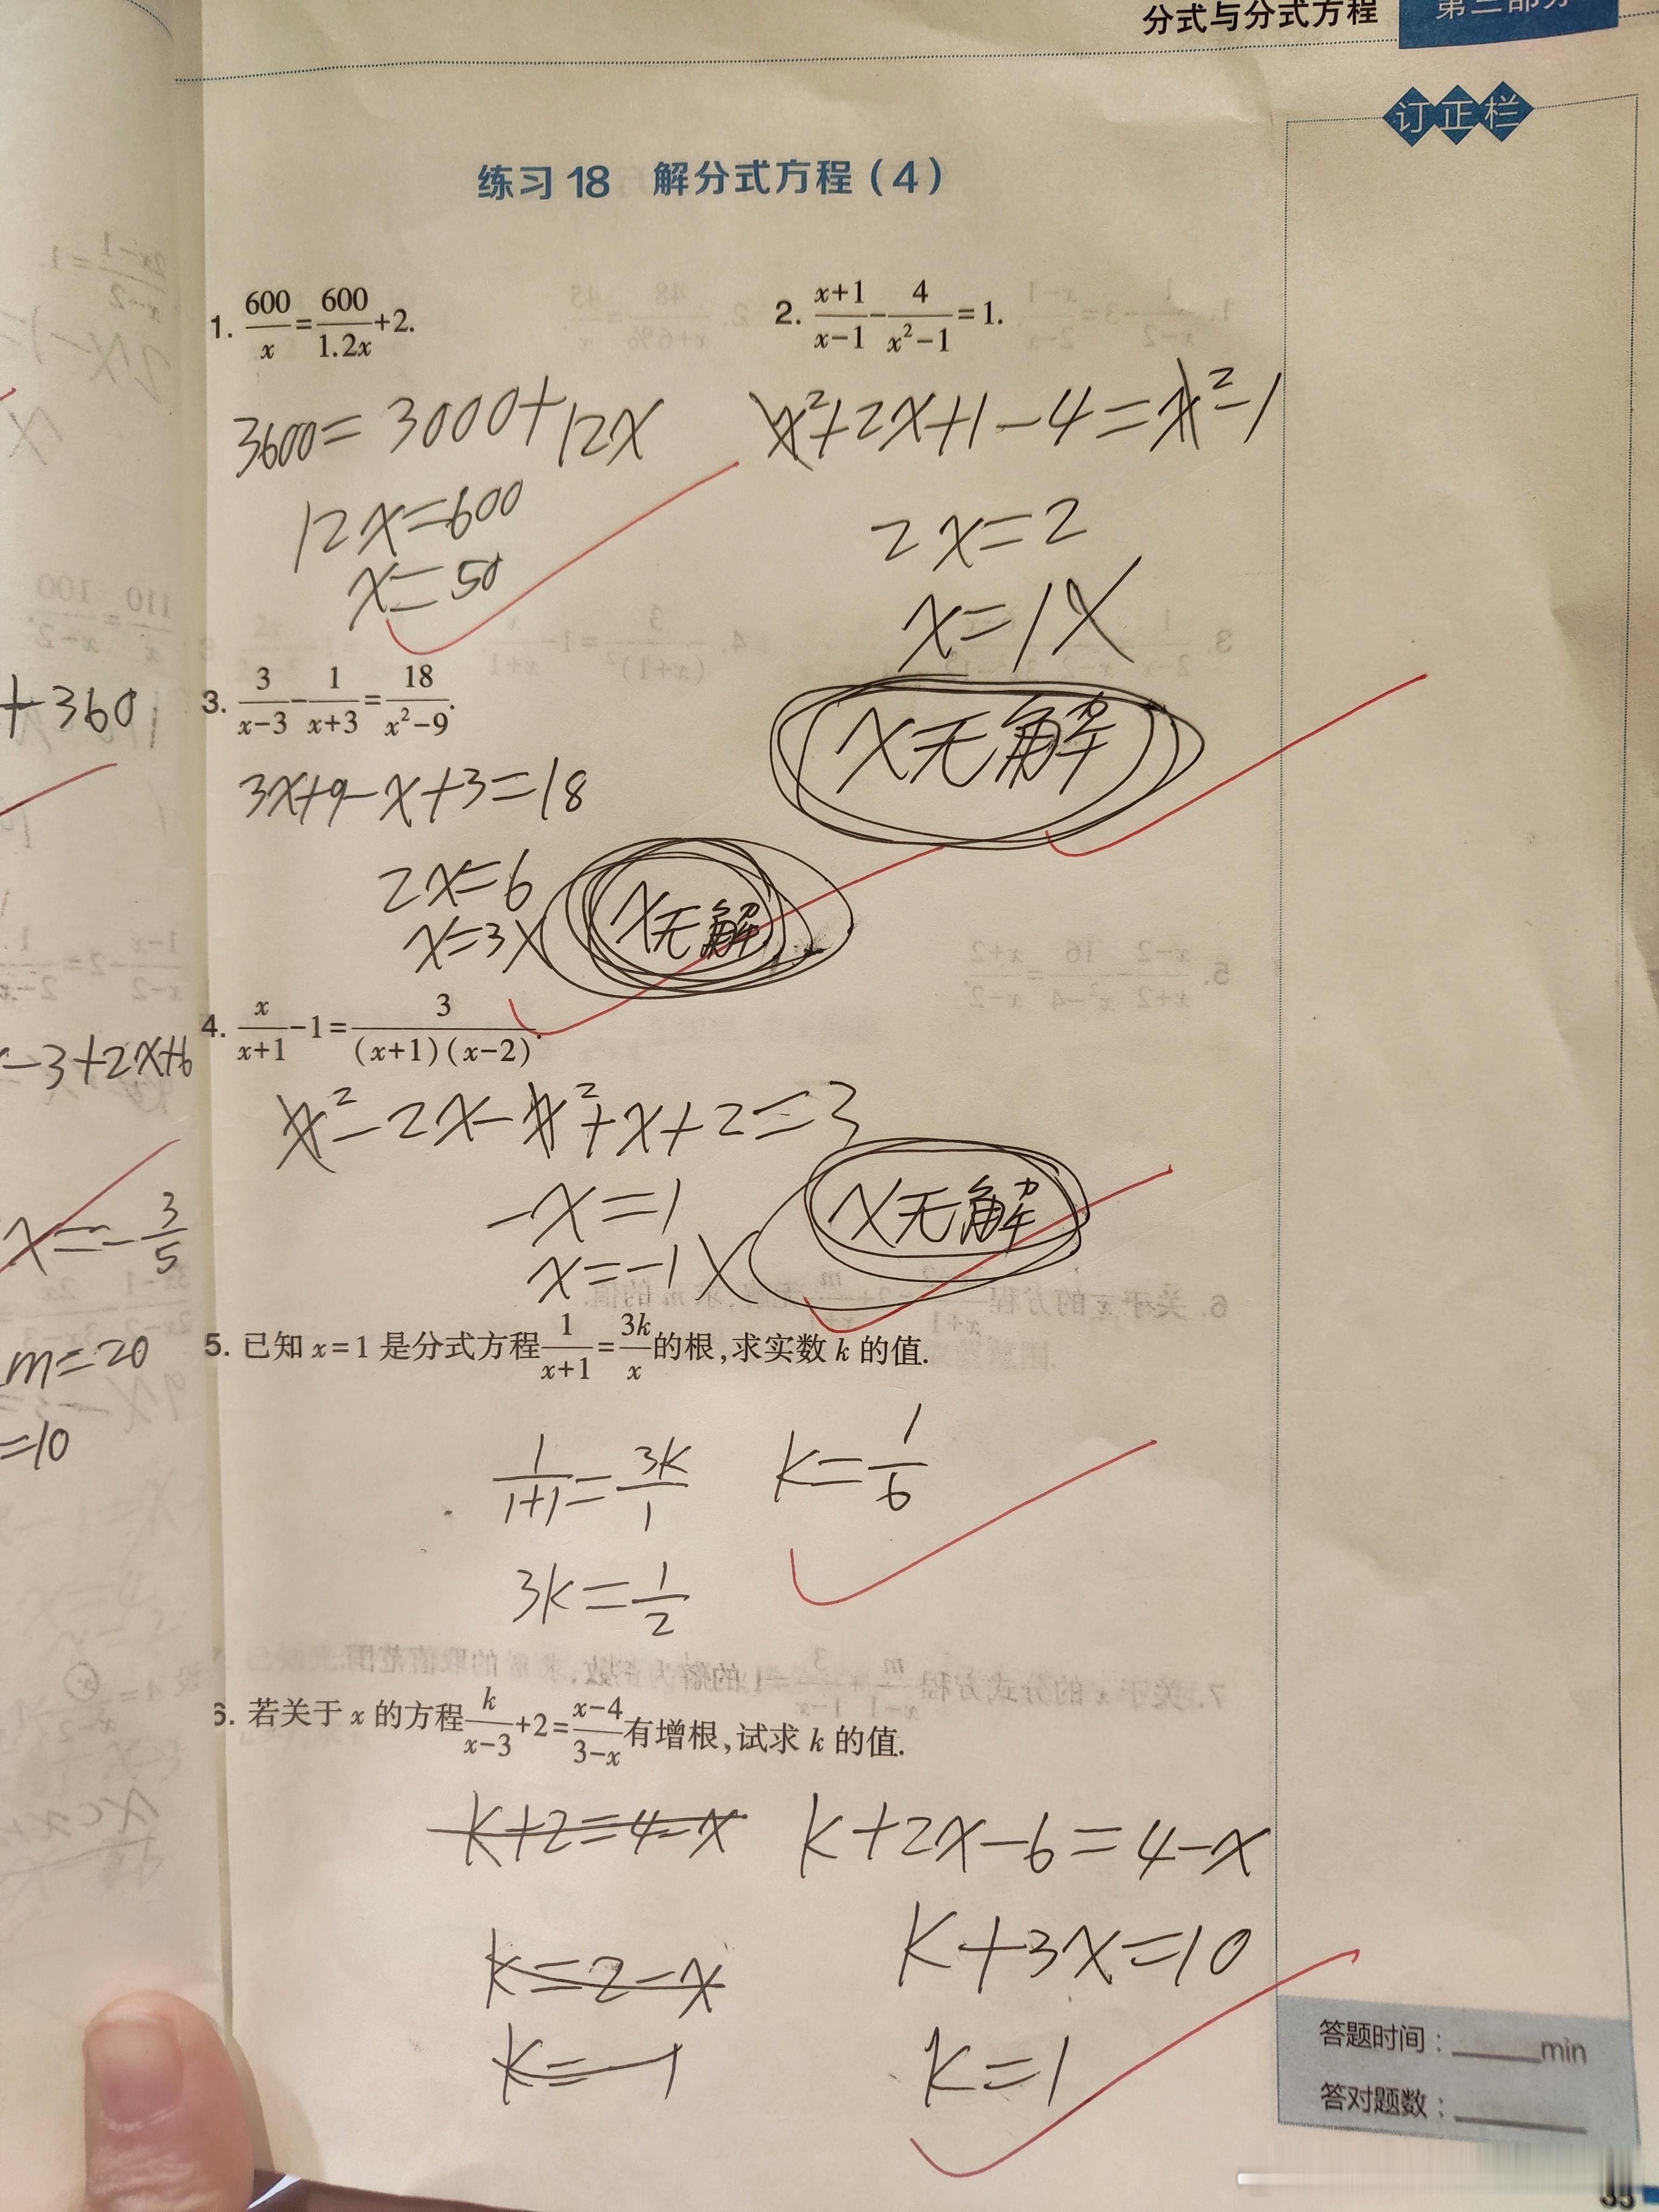 分式与分式方程
第三部分
订正栏
练习 18 解分式方程(4)
1. 600/x=600/1.2x+2.
3600=3000+12x
12x=600
x=50
2. x+1/x-1-4/x²-1=1.
x²+2x+1-4=x²-1
2x=2
x=1X
x无解
3. 3/x-3-1/x+3=18/x²-9.
3x+9-x+3=18
2x=6
x=3X
x无解
4. x/x+1-1=3/(x+1)(x-2).
x²-2x-x²+x+2=3
-x=1
x=-1X
x无解
5. 已知 x=1 是分式方程1/x+1=3k/x的根,求实数 k 的值.
1/1+1=3k/1
3k=1/2
k=1/6
6. 若关于 x 的方程k/x-3+2=x-4/3-x有增根,试求 k 的值.
k+2=4-x
k=2-x
k=-1
k+2x-6=4-x
k+3x=10
k=1
答题时间:______min
答对题数:______
+360
-3+2x+6
x=-3/5
m=20
=10